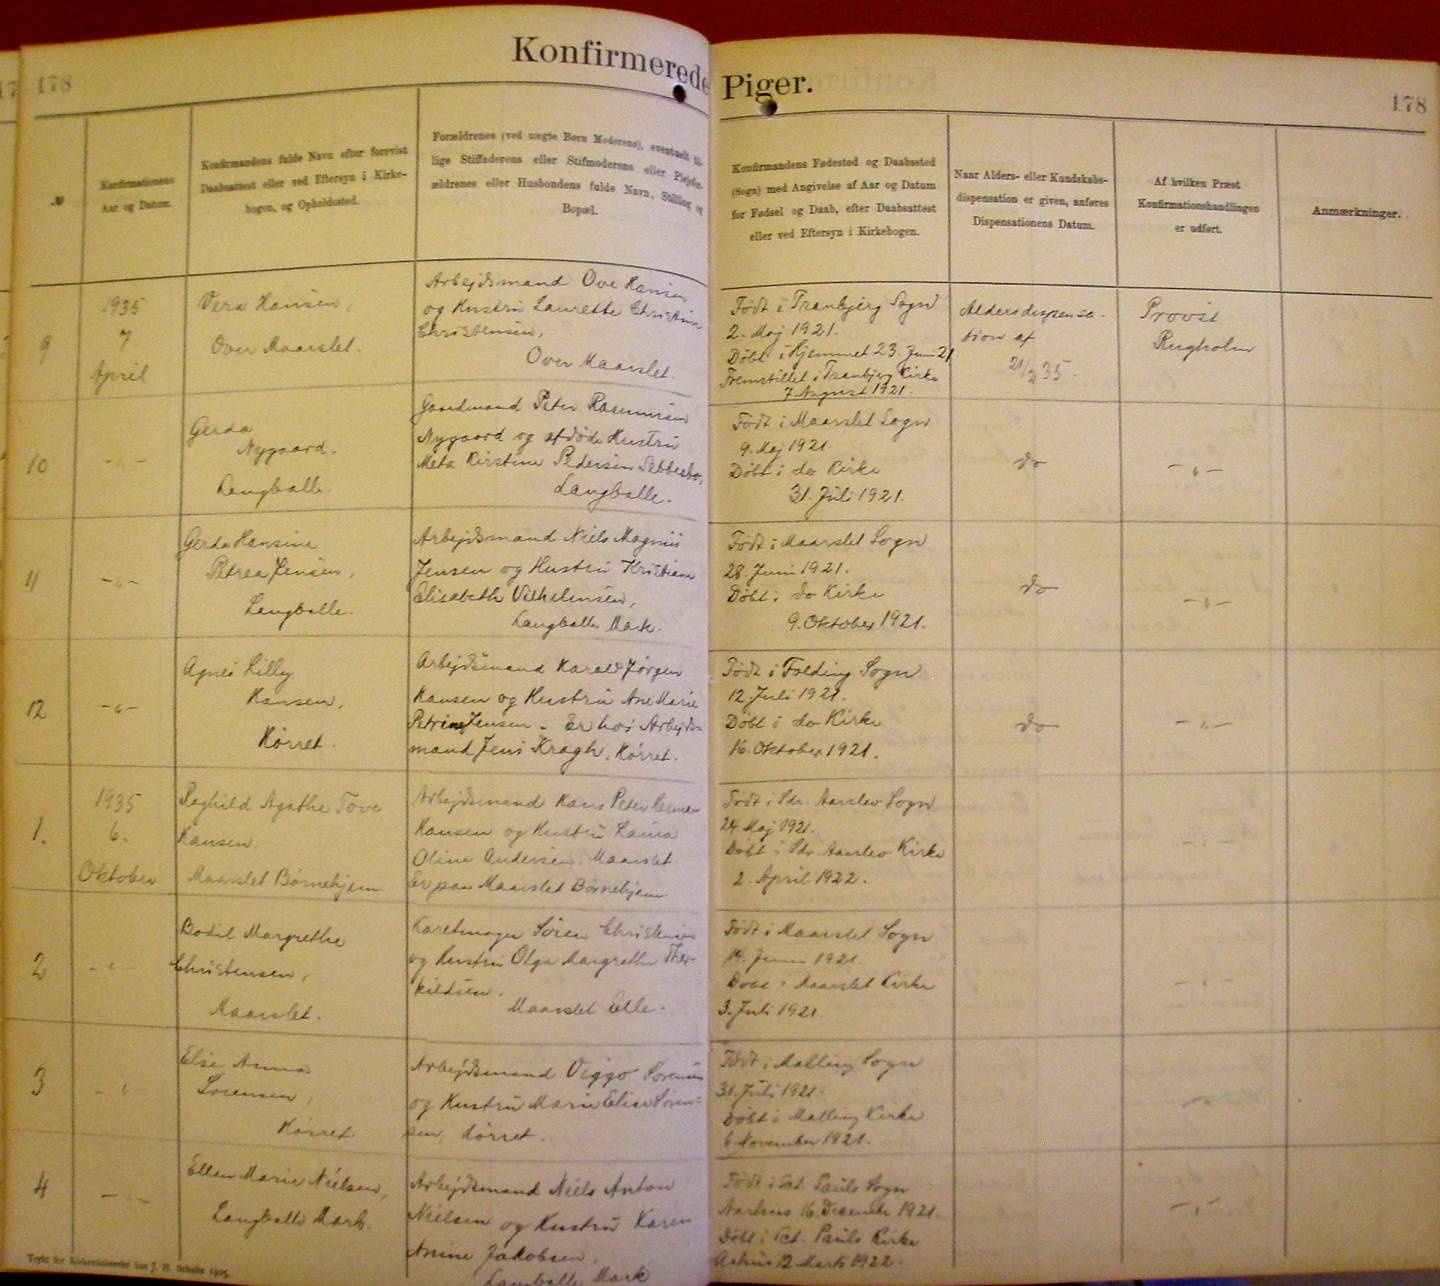 178
Konfirmerede Piger.
178
№
Konfirmationens
Aar og Datum.
Konfirmandens fulde Navn efter forevist
Daabsattest eller ved Eftersyn i Kirke-
bogen, og Opholdssted.
Forældrenes (ved uægte Børn Moderens), eventuelt til-
lige Stiffaderens eller Stifmoderens eller Plejefor-
ældrenes eller Husbondens fulde Navn, Stilling og
Bopæl.
Konfirmandens Fødested og Daabssted
(Sogn) med Angivelse af Aar og Datum
for Fødsel og Daab, efter Daabsattest
eller ved Eftersyn i Kirkebogen.
Naar Alders- eller Kundskabs-
dispensation er given, anføres
Dispensationens Datum.
Af hvilken Præst
Konfirmationshandlingen
er udført.
Anmærkninger.
9
1935
7
April
Vera Hansen,
Over Maarslet.
Arbejdsmand Ove Hansen
og Hustru Laurette Christina
Christensen,
Over Maarslet.
Født i Tranbjerg Sogn
2. Maj 1921.
Døbt i Hjemmet 23. Juni 21
Fremstillet i Tranbjerg Kirke
7. August 1921.
Aldersdispensa-
tion af
21/3 35.
Provst
Rugholm
10
-"-
Gerda
Nygaard.
Langballe.
Gaardmand Peter Rasmussen
Nygaard og afdøde Hustru
Meta Kirstine Pedersen
Langballe.
Født i Maarslet Sogn
9. Maj 1921
Døbt i do Kirke
31. Juli 1921.
do
-"-
11
-"-
Gerda Hansine
Petrea Jensen,
Langballe.
Arbejdsmand Niels Magnus
Jensen og Hustru Kristiane
Elisabeth Vilhelmsen,
Langballe Mark.
Født i Maarslet Sogn
28. Juni 1921.
Døbt i do Kirke
9. Oktober 1921.
do
-"-
12
-"-
Agnes Lilly
Hansen,
Hørret.
Arbejdsmand Harald Jørgen
Hansen og Hustru Ane Marie
Petrine Jensen - Er hos Arbejds-
mand Jens Kragh, Hørret.
Født i Folding Sogn
12. Juli 1921.
Døbt i do Kirke
16. Oktober 1921.
do
-"-
1.
1935
6.
Oktober
Raghild Agathe Tove
Hansen,
Maarslet Børnehjem
Arbejdsmand Hans Peter Herman
Hansen og Hustru Laura
Oline Andersen. Maarslet.
Er paa Maarslet Børnehjem
Født i Sdr. Aarslev Sogn
24 Maj 1921.
Døbt i Sdr. Aarslev Kirke
2. April 1922.
-"-
2
-"-
Bodil Margrethe
Christensen,
Maarslet.
Karetmager Søren Christensen
og Hustru Olga Margrethe Ther-
kildsen.
Maarslet
Født i Maarslet Sogn
14. Juni 1921.
Døbt i Maarslet Kirke
3. Juli 1921.
-"-
3
-"-
Else Anna
Sørensen,
Hørret.
Arbejdsmand Viggo Sørensen
og Hustru Marie Elise Søren-
sen, Hørret.
Født i Malling Sogn
31. Juli 1921.
Døbt i Malling Kirke
6. November 1921.
-"-
4
-"-
Ellen Marie Nielsen,
Langballe Mark.
Arbejdsmand Niels Anton
Nielsen og Hustru Karen
Anine Jakobsen.
Langballe Mark
Født i Sct. Pauls Sogn
Aarhus 16. December 1921.
Døbt i Sct. Pauls Kirke
Aarhus 12 Marts 1922.
-"-
Trykt for Kirkeministeriet hos J. H. Schultz 1905.